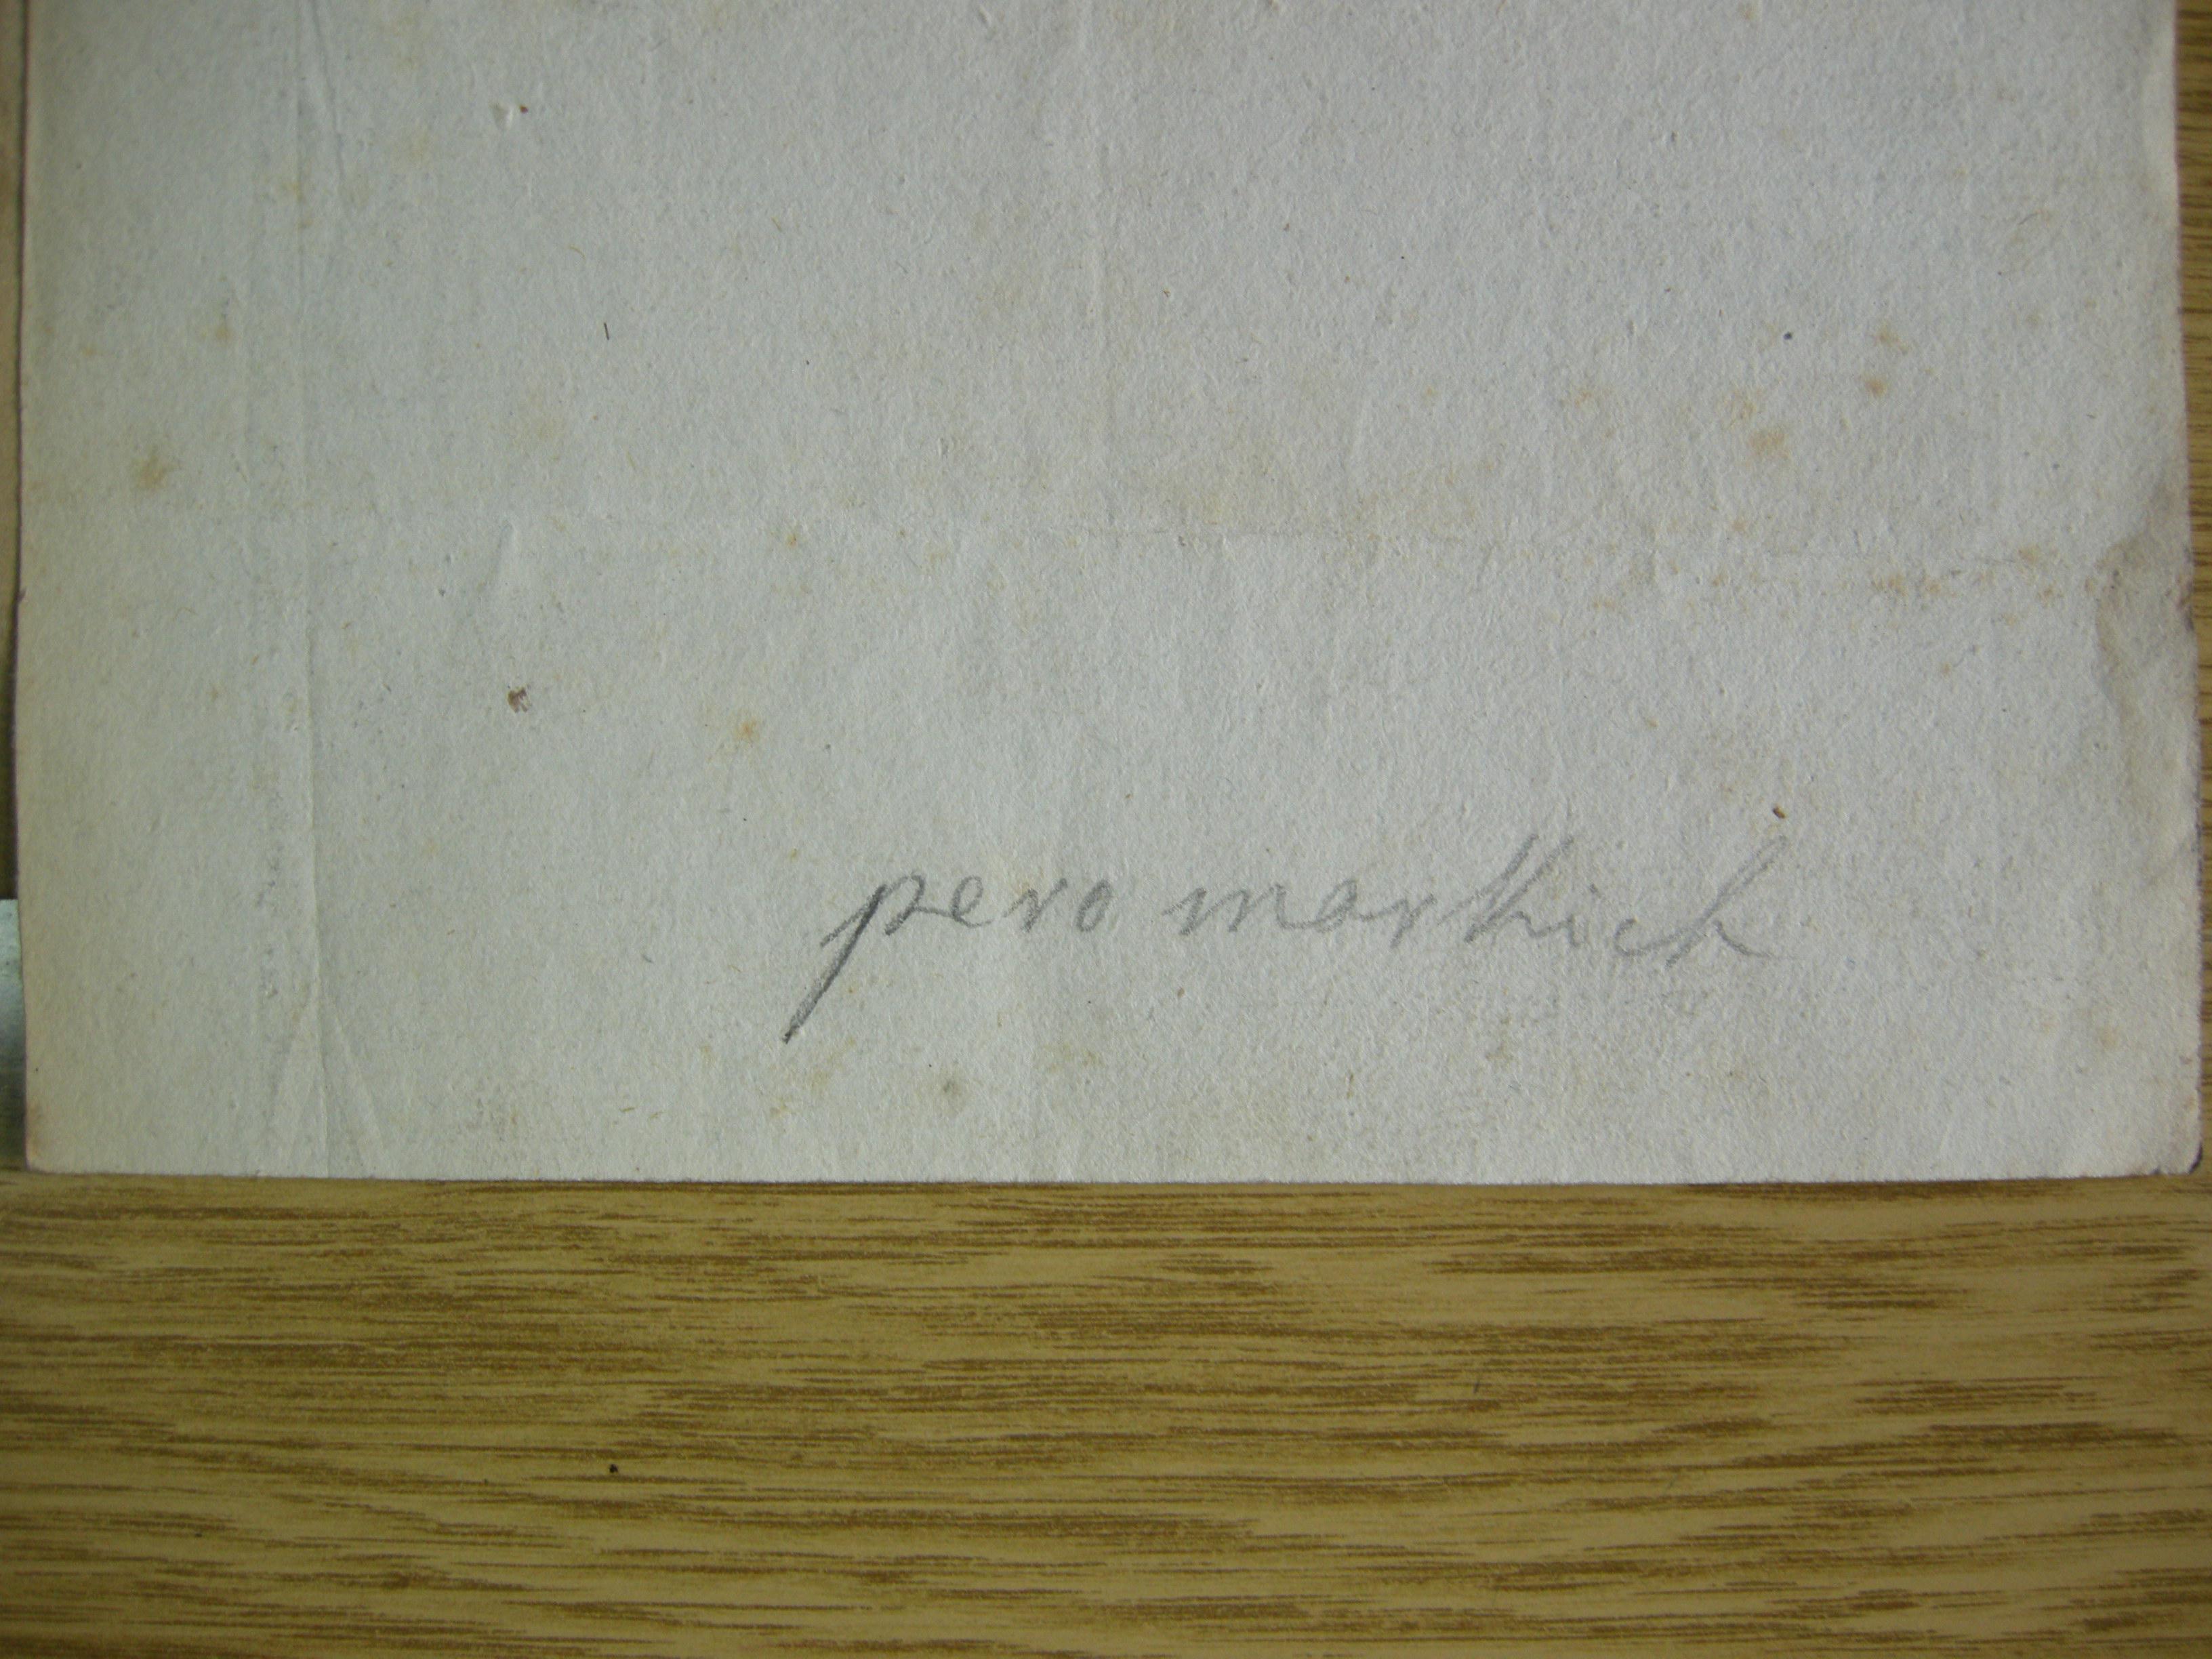 pero markich